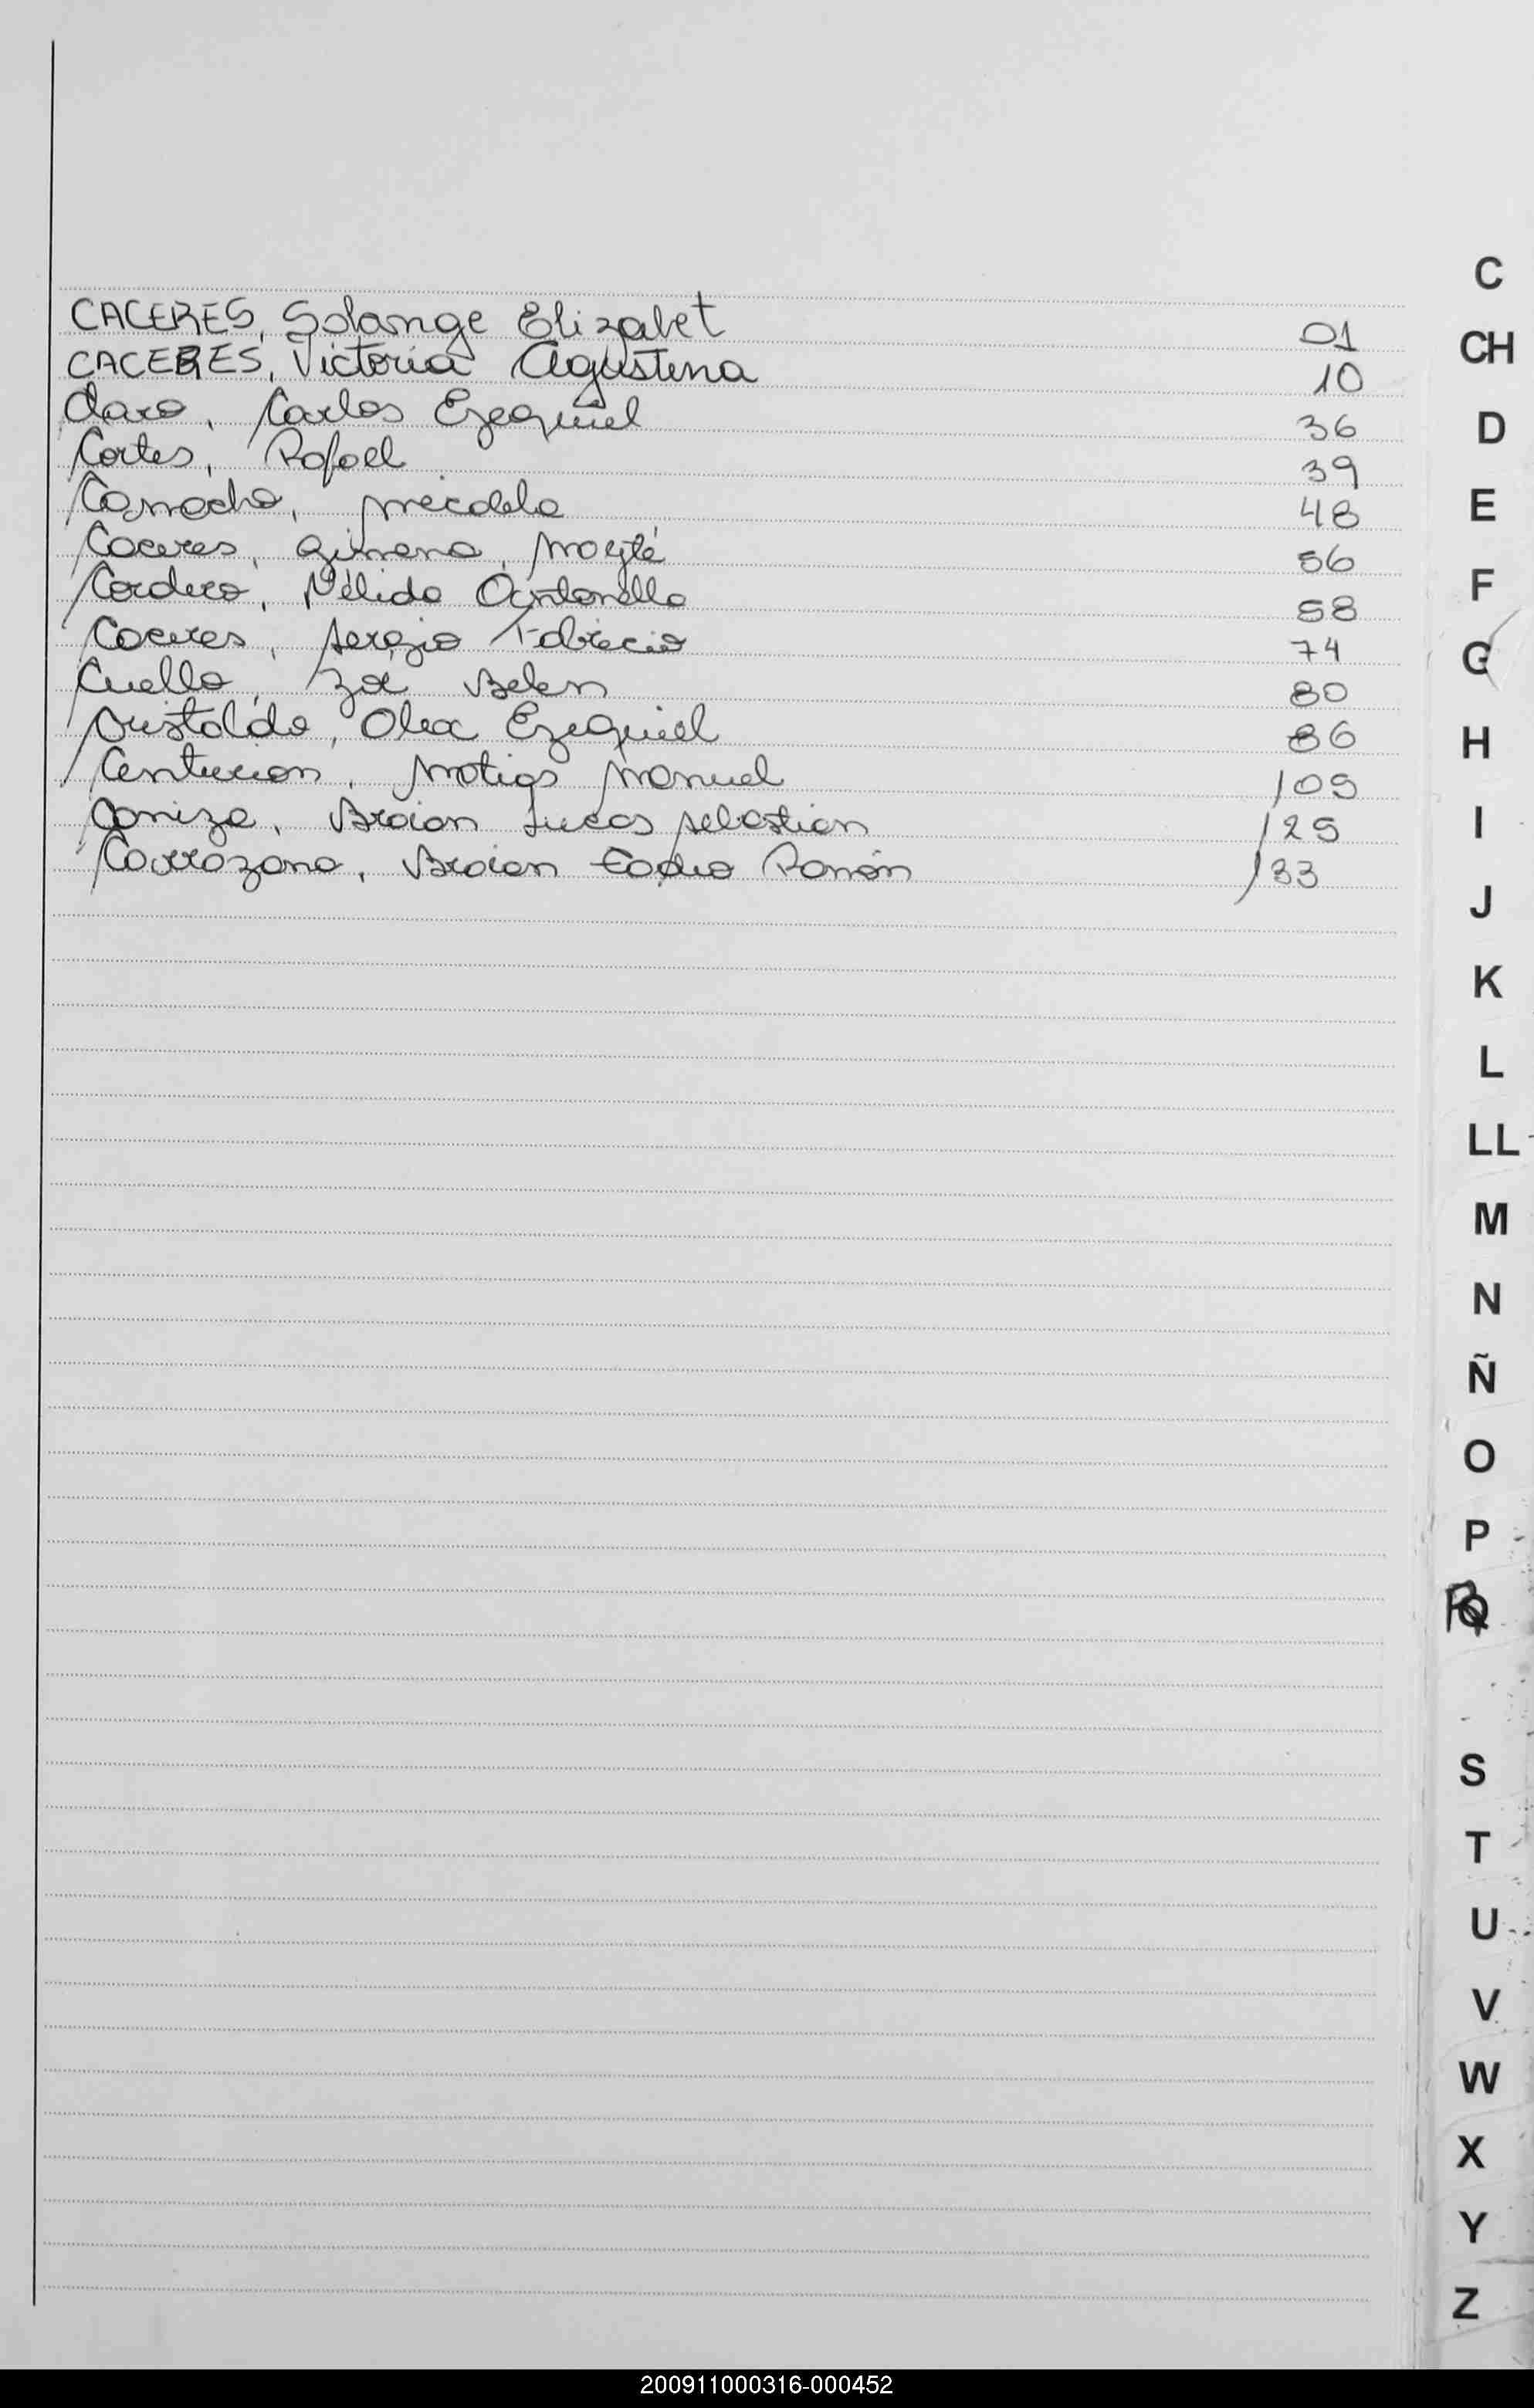 CACERES, Solange Elizabet 01
CACERES, Victoria Agustina 10
Claro, Carlos Ezequiel 36
Cortes, Rafael 39
Camacho, Micaela 48
Caceres, Gimena, Mayté 56
Cordero, Nélida Antonella 58
Caceres, Sergio Fabricio 74
Cuello, Zoé Belen 80
Cristaldo, Alex Ezequiel 86
Centurion, Matias Manuel 109
Caniza, Braian Lucas Sebastian 125
Carrozana, Braian Ramón 133
C
CH
D
E
F
G
H
I
J
K
L
LL
M
N
Ñ
O
P
RQ
S
T
U
V
W
X
Y
Z
200911000316-000452